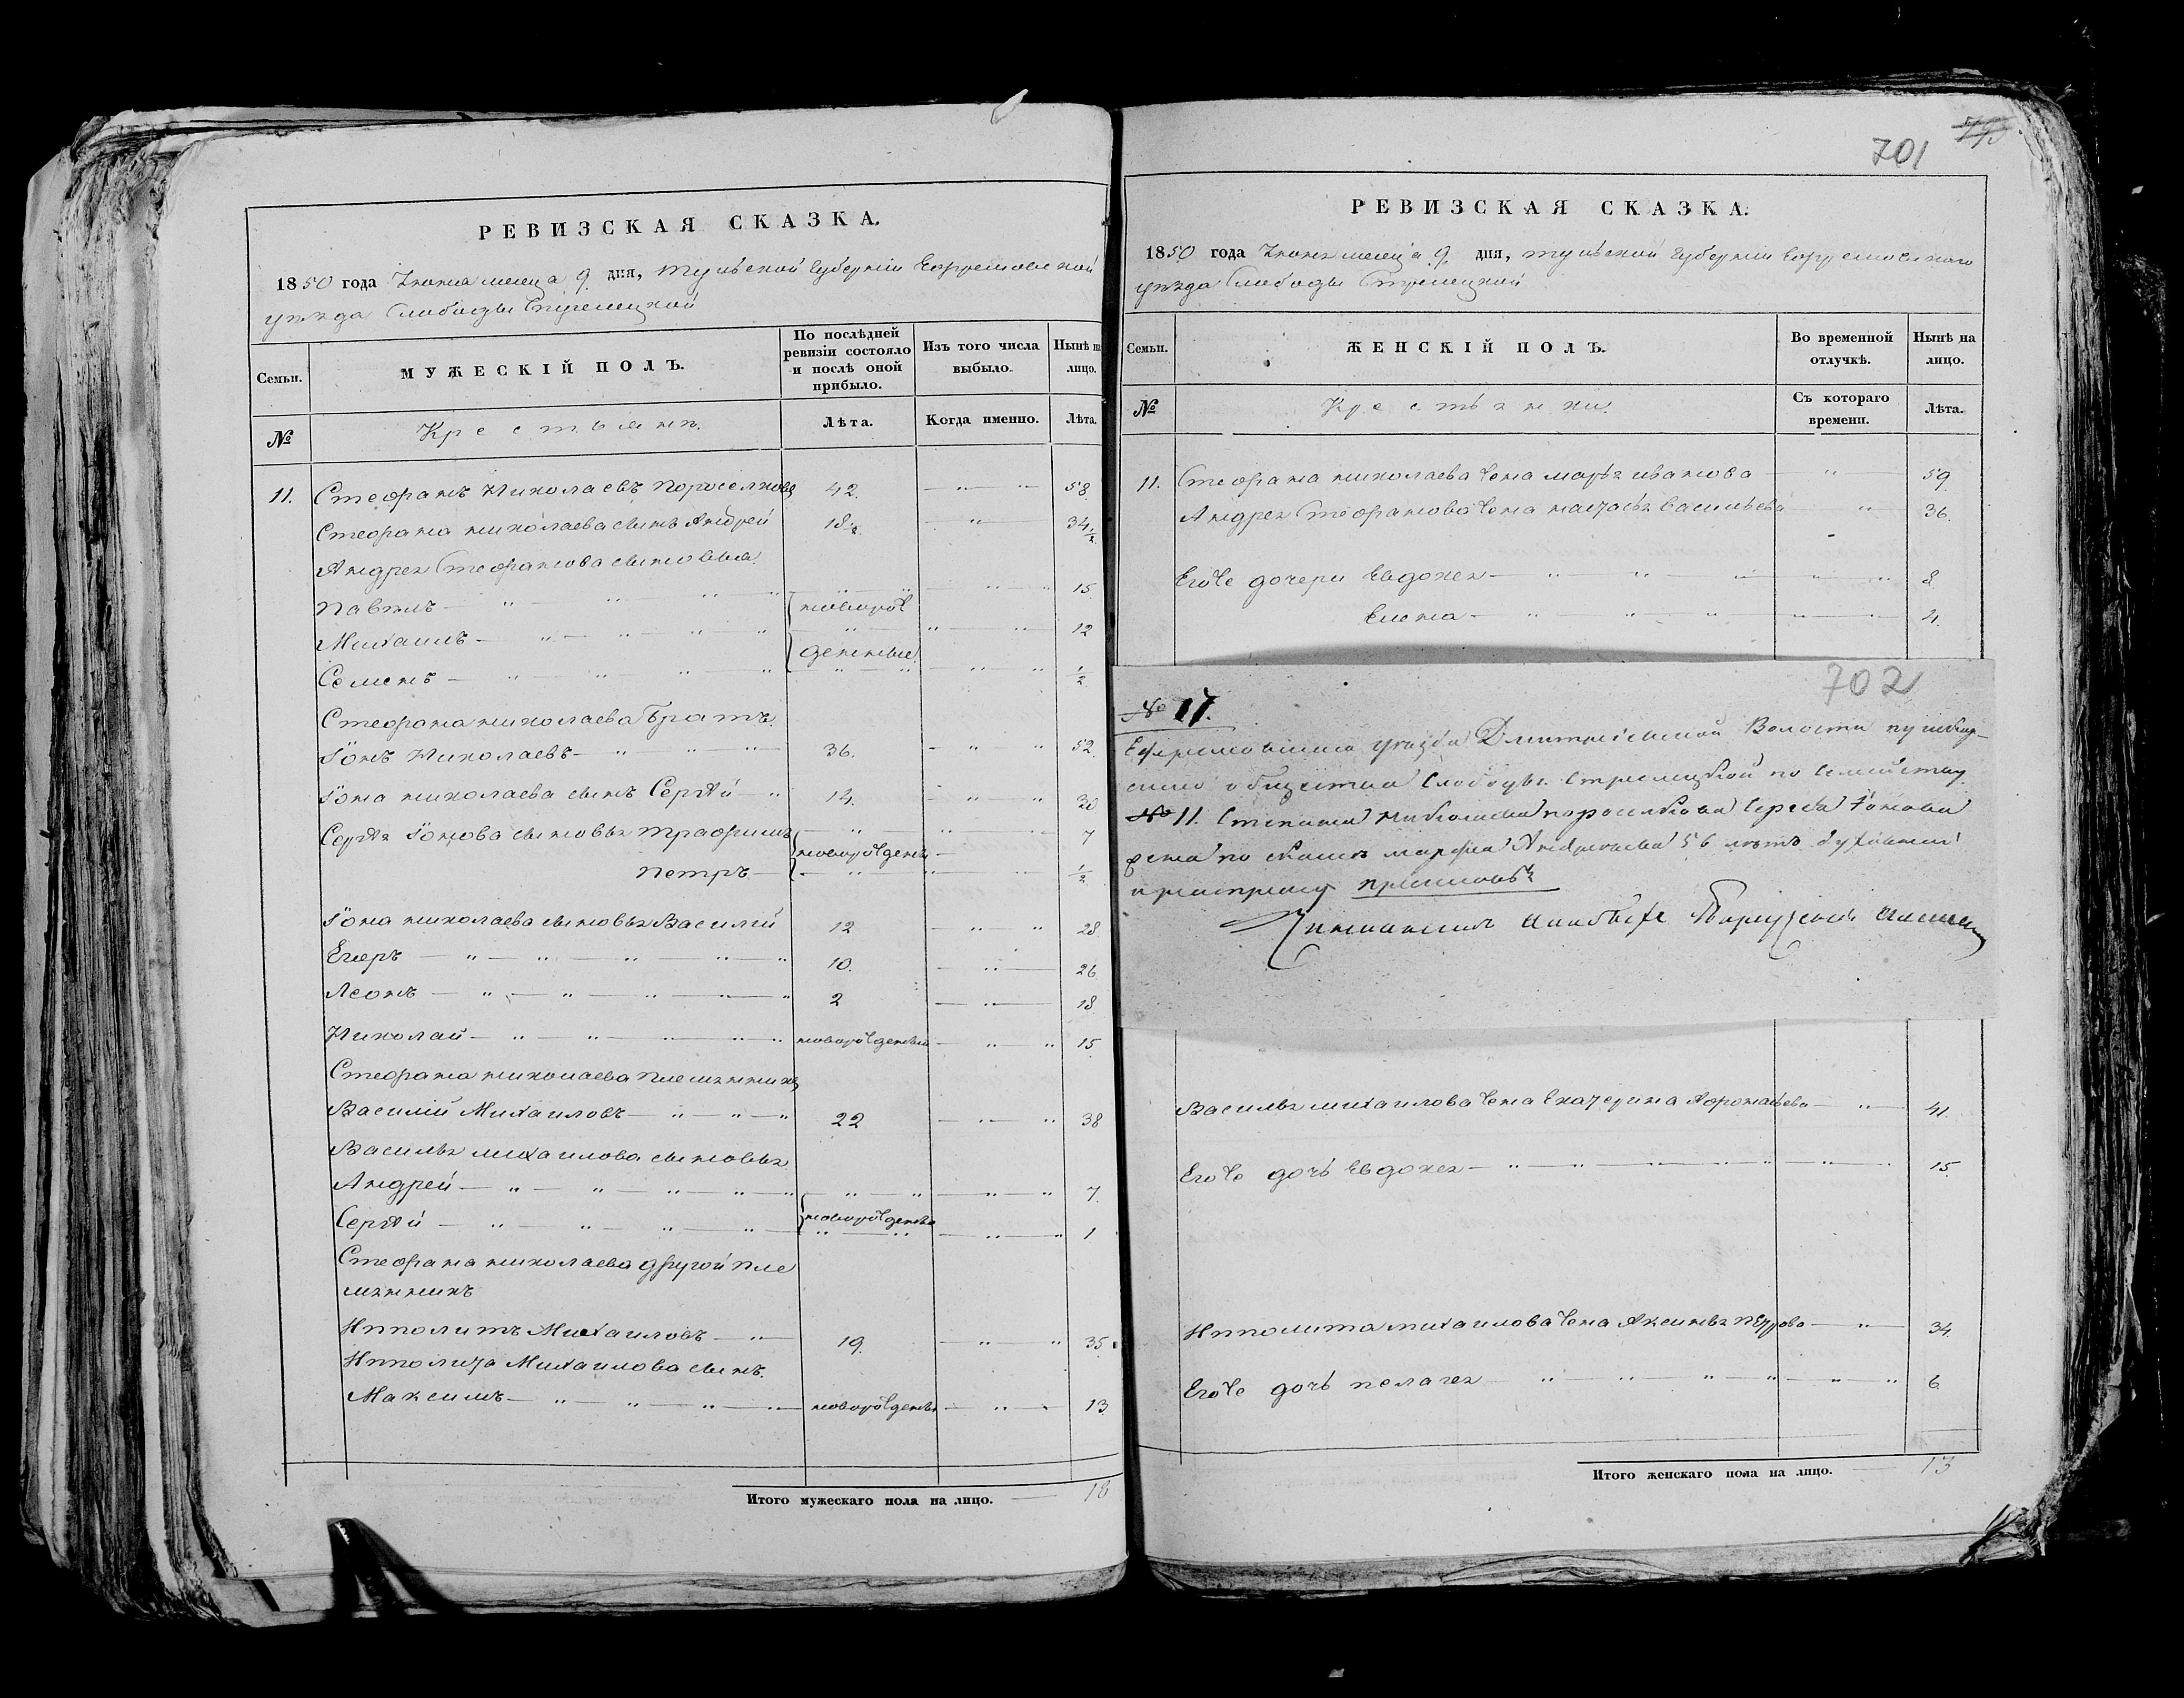 РЕВИЗСКАЯ СКАЗКА.
1850 года Іюня месеца 9 дня, Тульской Губерніи Ефремовской
уезда Слободы Стрелецкой
Семьи.
МУЖЕСКІЙ ПОЛЪ.
По послѣдней ревизіи состояло и послѣ оной прибыло.
Изъ того числа выбыло.
Нынѣ на лицо.
№
Крестьянѣ.
Лѣта.
Когда именно.
Лѣта.
11. Стефанъ Николаевъ Пороселковъ 42. 58
Стефана николаева сынъ Андрей 18½ 34½
Андрея Стефанова сыновья
Павелъ новорож 15
Михаилъ денные 12
Семенъ ½
Стефана николаева братъ
Іонъ Николаевъ 36. 52
Іона николаева сынъ Сергѣй 14. 30
Сергѣя Іонова сыновья Трафимъ новорожденны 7
петръ ½
Іона николаева сыновья Василей 12 28
Егоръ 10. 26
Леонъ 2 18
Николай новорожденны 15
Стефана николаева племянникъ
Василій Михаиловъ 22 38
Василья михаилова сыновья
Андрей 7.
Сергѣй новорожденны 1
Стефана николаева другой пле
мянникъ
Ипполитъ Михаиловъ 19. 35
Ипполита Михаилова сынъ
Максимъ новорожденны 13
Итого мужескаго пола на лицо. 18
701
РЕВИЗСКАЯ СКАЗКА.
1850 года Іюня месеца 9 дня, Тульской Губерніи Ефремовскаго
уезда Слободы Стрелецкой
Семьи.
ЖЕНСКІЙ ПОЛЪ.
Во временной отлучкѣ.
Нынѣ на лицо.
№
Крестьянки.
Съ котораго времени.
Лѣта.
11. Стефана николаева жена марья иванова 59
Андрея Стефанова жена настасья васильева 36.
Егоже дочери Евдокея 8
Елена 4.
702
№ 17.
Ефремовскаго уезда Дмитріевской Волости пушкар-
скаго общества Слободы Стрелецкой по семейству
№ 11. Степана Николаева пороселкова Сергея Іонова
жена по сказке марфа Андреевна 56 летъ
Василья михаилова жена Екатерина Афонасьева 41
Егоже дочь Евдокея 15
Ипполита михаилова жена Аксинья петрова 34
Егоже дочь пелагея 6
Итого женскаго пола на лицо. 13